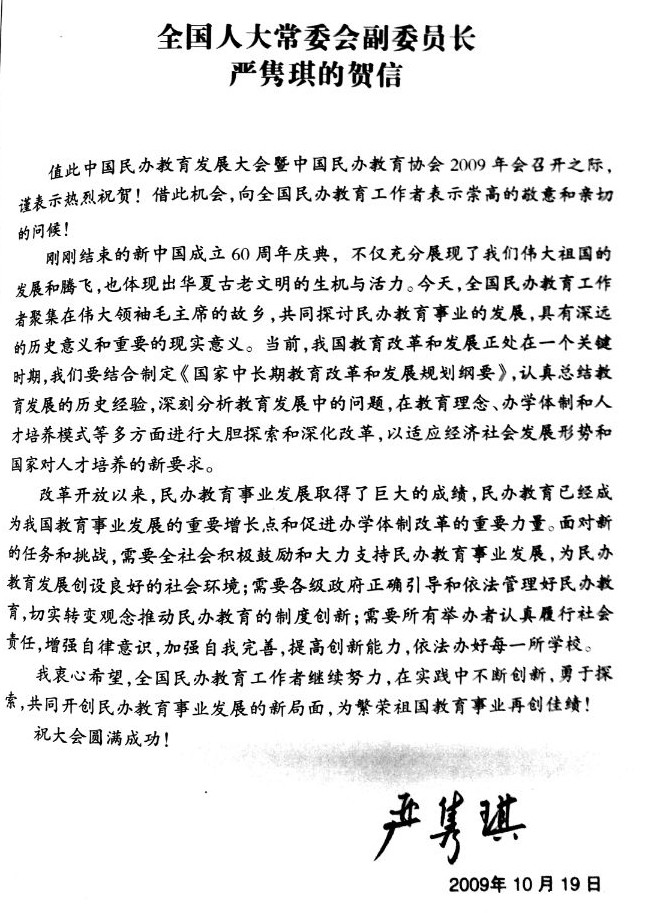 全国人大常委会副委员长
严隽琪的贺信
值此中国民办教育发展大会暨中国民办教育协会 2009 年会召开之际，
谨表示热烈祝贺！借此机会，向全国民办教育工作者表示崇高的敬意和亲切
的问候！
刚刚结束的新中国成立 60 周年庆典，不仅充分展现了我们伟大祖国的
发展和腾飞，也体现出华夏古老文明的生机与活力。今天，全国民办教育工作
者聚集在伟大领袖毛主席的故乡，共同探讨民办教育事业的发展，具有深远
的历史意义和重要的现实意义。当前，我国教育改革和发展正处在一个关键
时期，我们要结合制定《国家中长期教育改革和发展规划纲要》，认真总结教
育发展的历史经验，深刻分析教育发展中的问题，在教育理念、办学体制和人
才培养模式等多方面进行大胆探索和深化改革，以适应经济社会发展形势和
国家对人才培养的新要求。
改革开放以来，民办教育事业发展取得了巨大的成绩，民办教育已经成
为我国教育事业发展的重要增长点和促进办学体制改革的重要力量。面对新
的任务和挑战，需要全社会积极鼓励和大力支持民办教育事业发展，为民办
教育发展创设良好的社会环境；需要各级政府正确引导和依法管理好民办教
育，切实转变观念推动民办教育的制度创新；需要所有举办者认真履行社会
责任，增强自律意识，加强自我完善，提高创新能力，依法办好每一所学校。
我衷心希望，全国民办教育工作者继续努力，在实践中不断创新，勇于探
索，共同开创民办教育事业发展的新局面，为繁荣祖国教育事业再创佳绩！
祝大会圆满成功！
严隽琪
2009年 10 月 19 日